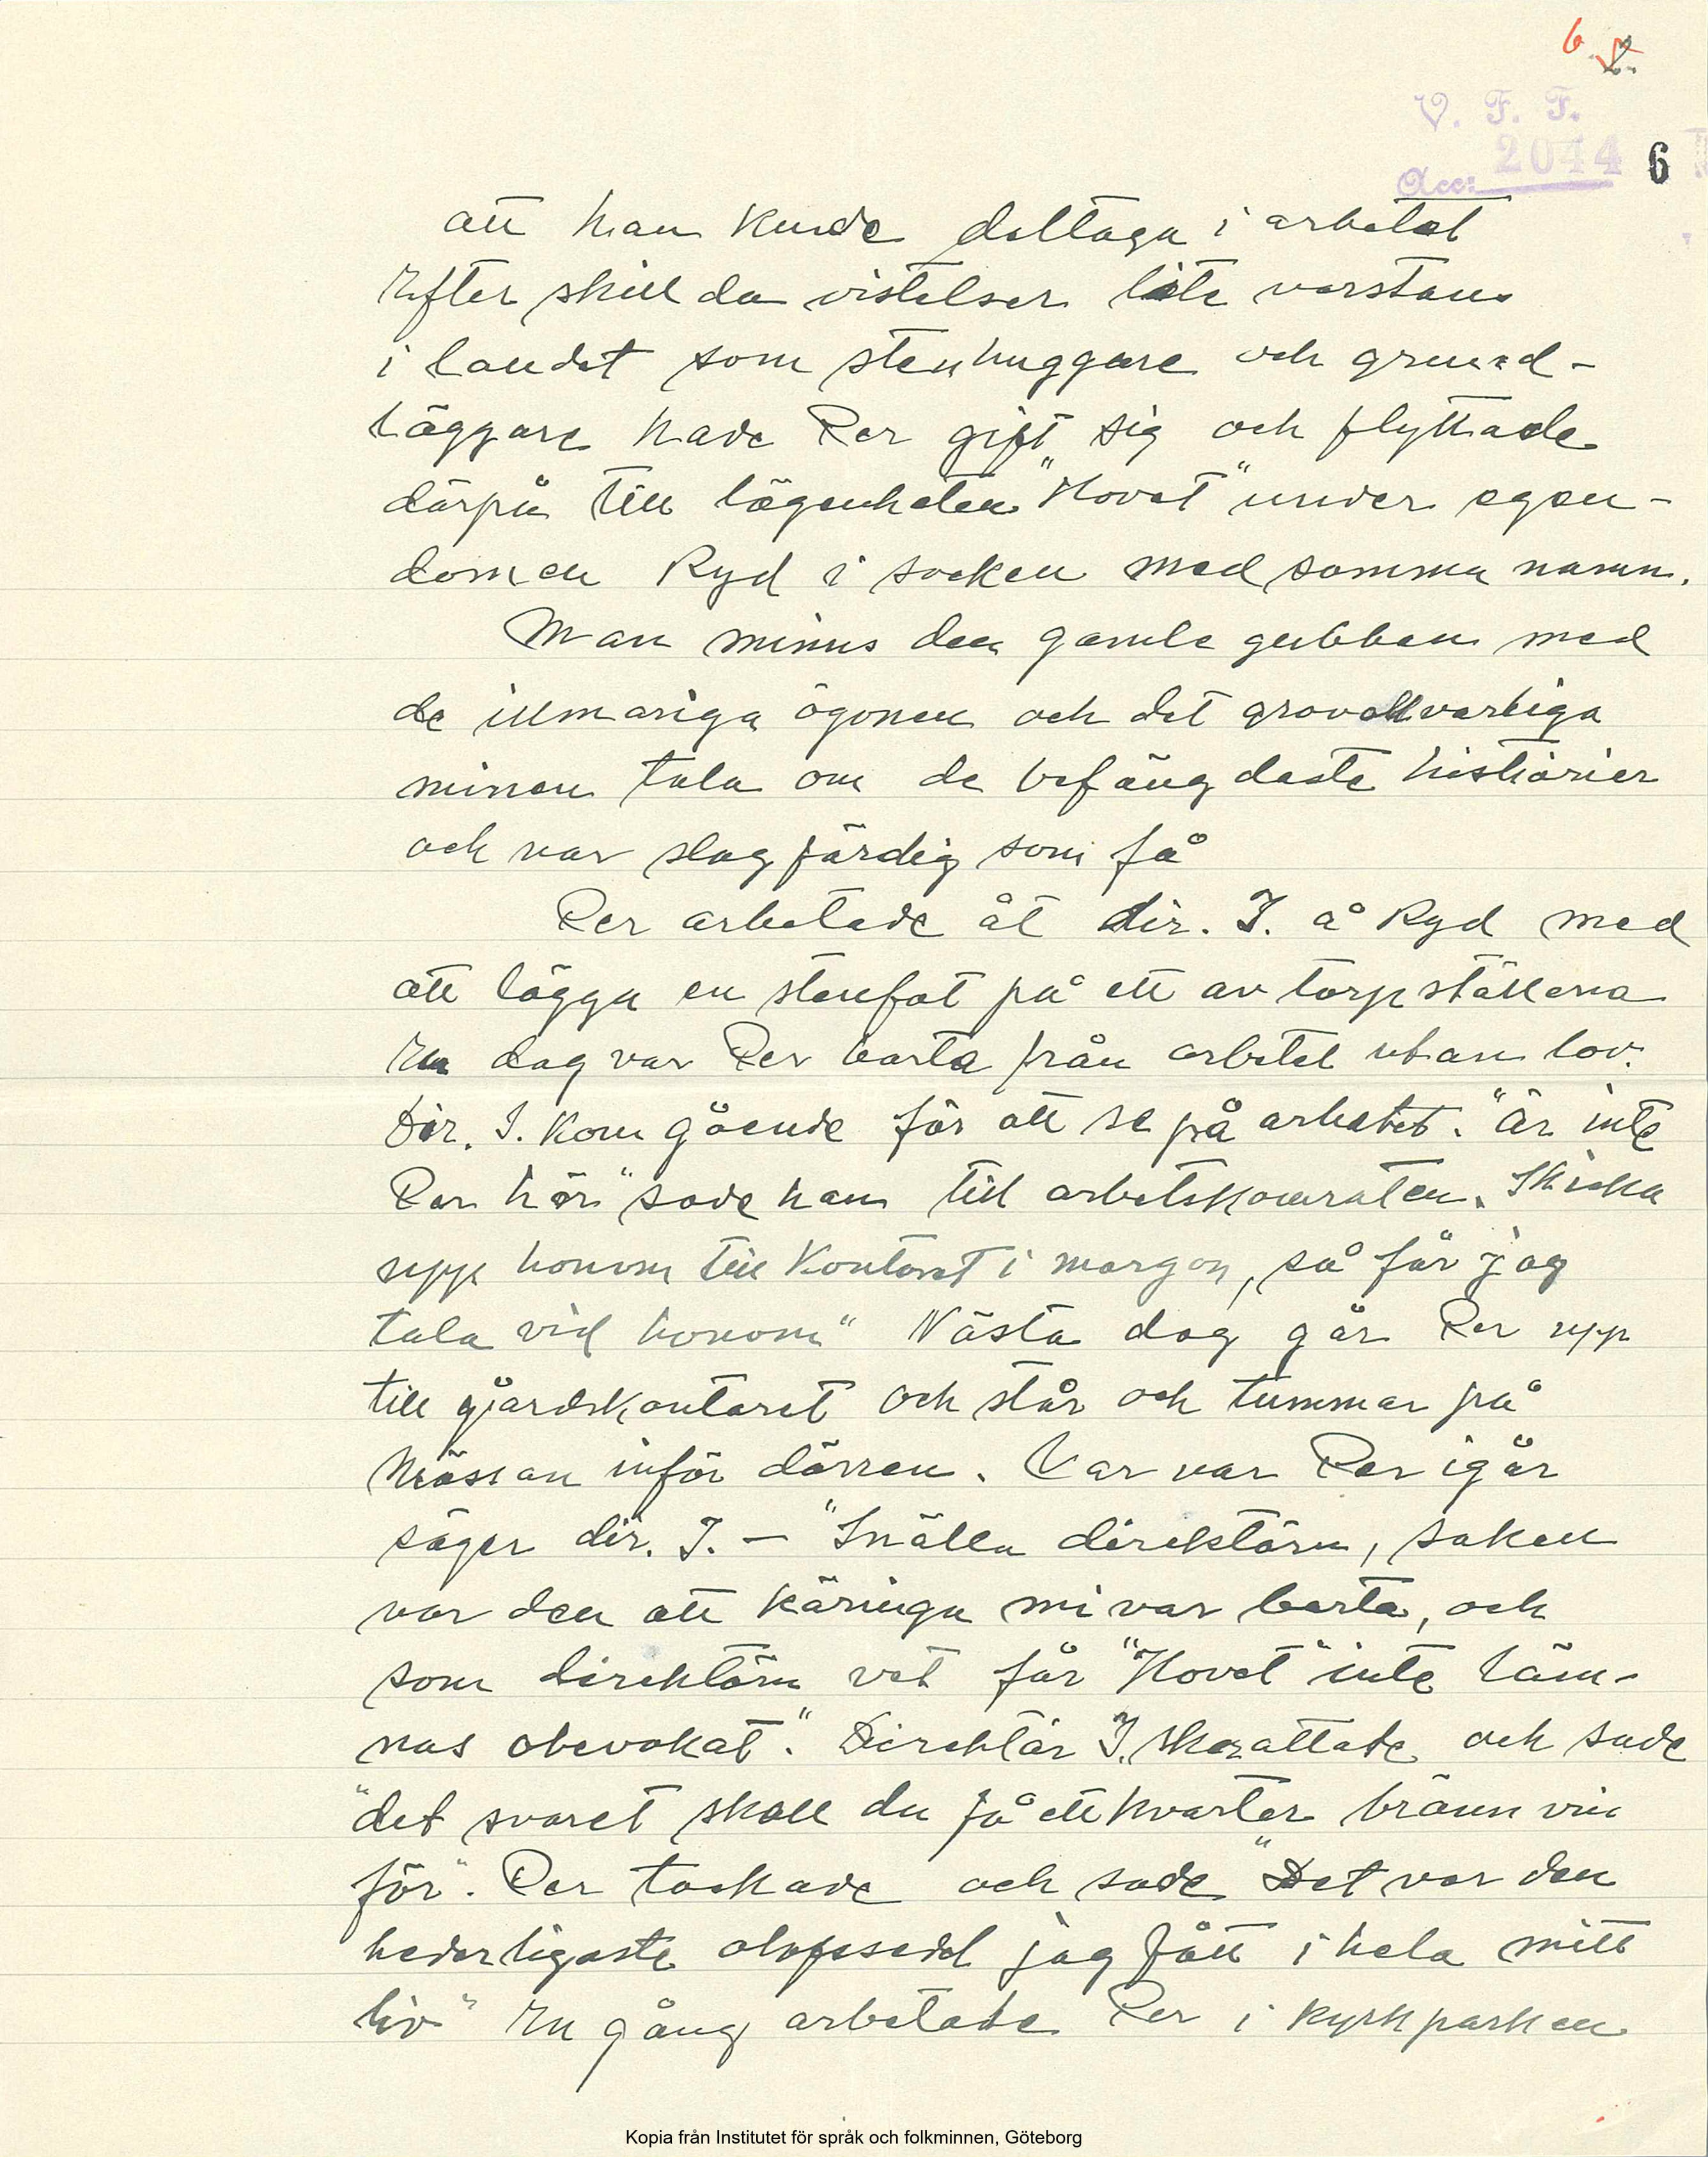 6
V. F. T.
Acc: 2044 6
att han kunde deltaga i arbetet
Efter skillda vistelser lite varstans
i landet som stenhuggare och grund-
läggare hade Per gift sig och flyttade
därpå till lägenheten "Hovet" under egen-
domen Ryd i socken med samma namn.
Man minns den gamle gubben med
de illmariga ögonen och det gravallvarliga
minen tala om de befängdaste historier
och var slagfärdig som få
Per arbetade åt dir. I. å Ryd med
att lägga en stenfot på ett av torpställena
En dag var Per borta från arbetet utan lov.
Dir. I. kom gående för att se på arbetet. "Är inte
Per här" sade han till arbetskamraten. Skicka
upp honom till Kontoret i morgon, så får jag
tala vid honom" Nästa dag går Per upp
till gårdskontoret och står och tummar på
mössan inför dörren. Var var Per igår
säger dir. I. – "Snälla direktörn, saken
var den att käringa mi var borta, och
som direktörn vet får "Hovet" inte läm-
nas obevakat". Direktör I. skrattade och sade
"det svaret skall du få ett kvarter brännvin
för". Per tackade och sade "Det var den
hederligaste ohfsedel jag fått i hela mitt
liv" En gång arbetade Per i kyrkparken
Kopia från Institutet för språk och folkminnen, Göteborg